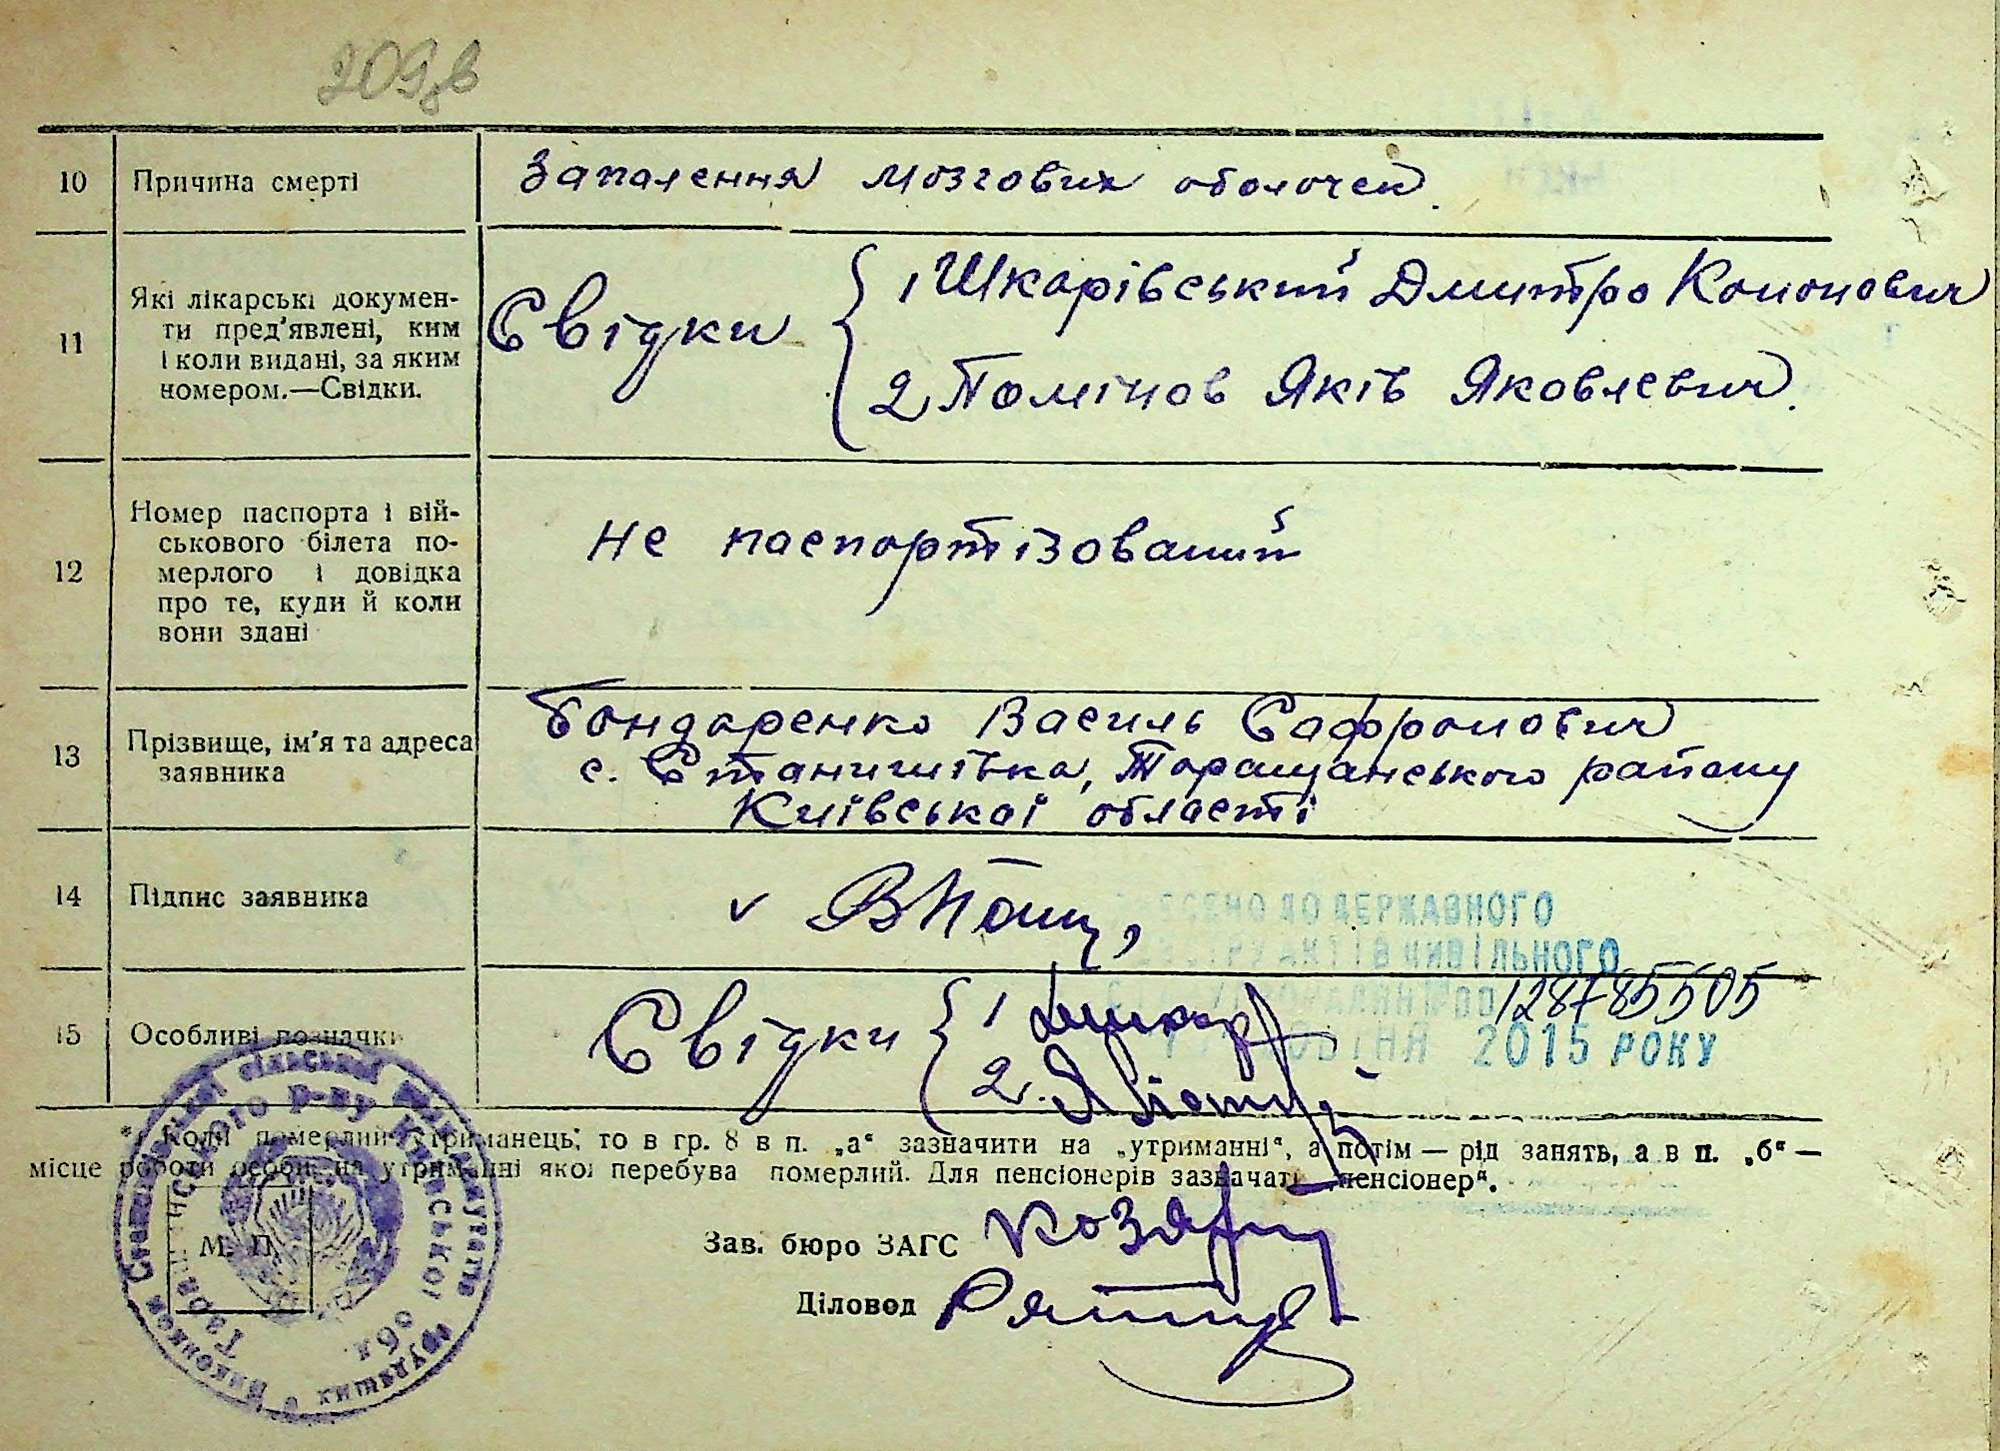 209зв
10 Причина смерті Запалення мозгових оболочек.
11 Які лікарські докумен-
ти пред'явлені, ким
і коли видані, за яким
номером.—Свідки.
Свідки { 1 Шкарівський Дмитро Кононович
2 Помінов Яків Яковлевич.
12 Номер паспорта і вій-
ськового білета по-
мерлого і довідка
про те, куди й коли
вони здані
Не паспортізований
13 Прізвище, ім'я та адреса
заявника
Бондаренко Василь Сафронович
с. Станишівка, Таращанського району
Київської області
14 Підпис заявника
ДО ДЕРЖАВНОГО
АКТІВ ЦИВІЛЬНОГО
128785505
2015 РОКУ
15 Особливі позначки Свідки { 1
2.
*) Коли померлий утриманець, то в гр. 8 в п. „а“ зазначити на „утриманні“, а потім — рід занять, а в п. „б“ —
місце роботи особи, на утриманні якої перебува померлий. Для пенсіонерів зазначати „пенсіонер“.
Зав. бюро ЗАГС
Діловод
М. П.
Виконком Станишівської сільської ради депутатів трудящих
Таращанського р-ну Київської обл.